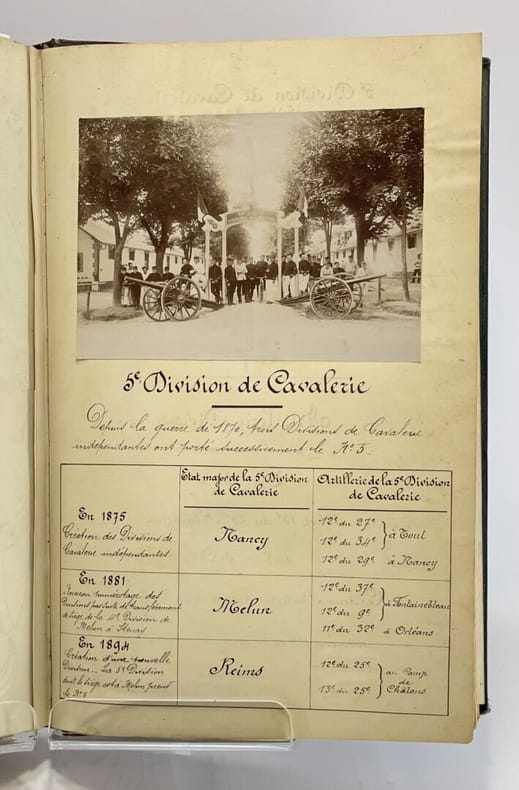 5e Division de Cavalerie
Depuis la guerre de 1870, trois Divisions de Cavalerie
indépendantes ont porté successivement le No 5.
Etat major de la 5e Division
de Cavalerie
Artillerie de la 5e Division
de Cavalerie
En 1875
Création des Divisions de
Cavalerie indépendantes
Nancy
12e du 27e
12e du 34e
à Toul
12e du 29e à Nancy
En 1881
Nouveau numérotage des
Divisions par suite du transfèrement
du siège de la 4e Division de
Melun à Stenay
Melun
12e du 37e
12e du 9e
à Fontainebleau
11e du 32e à Orléans
En 1894
Création d'une nouvelle
Division. La 5e Division
dont le siège est à Melun prend
le No 1
Reims
12e du 25e
13e du 25e
au Camp
de
Châlons